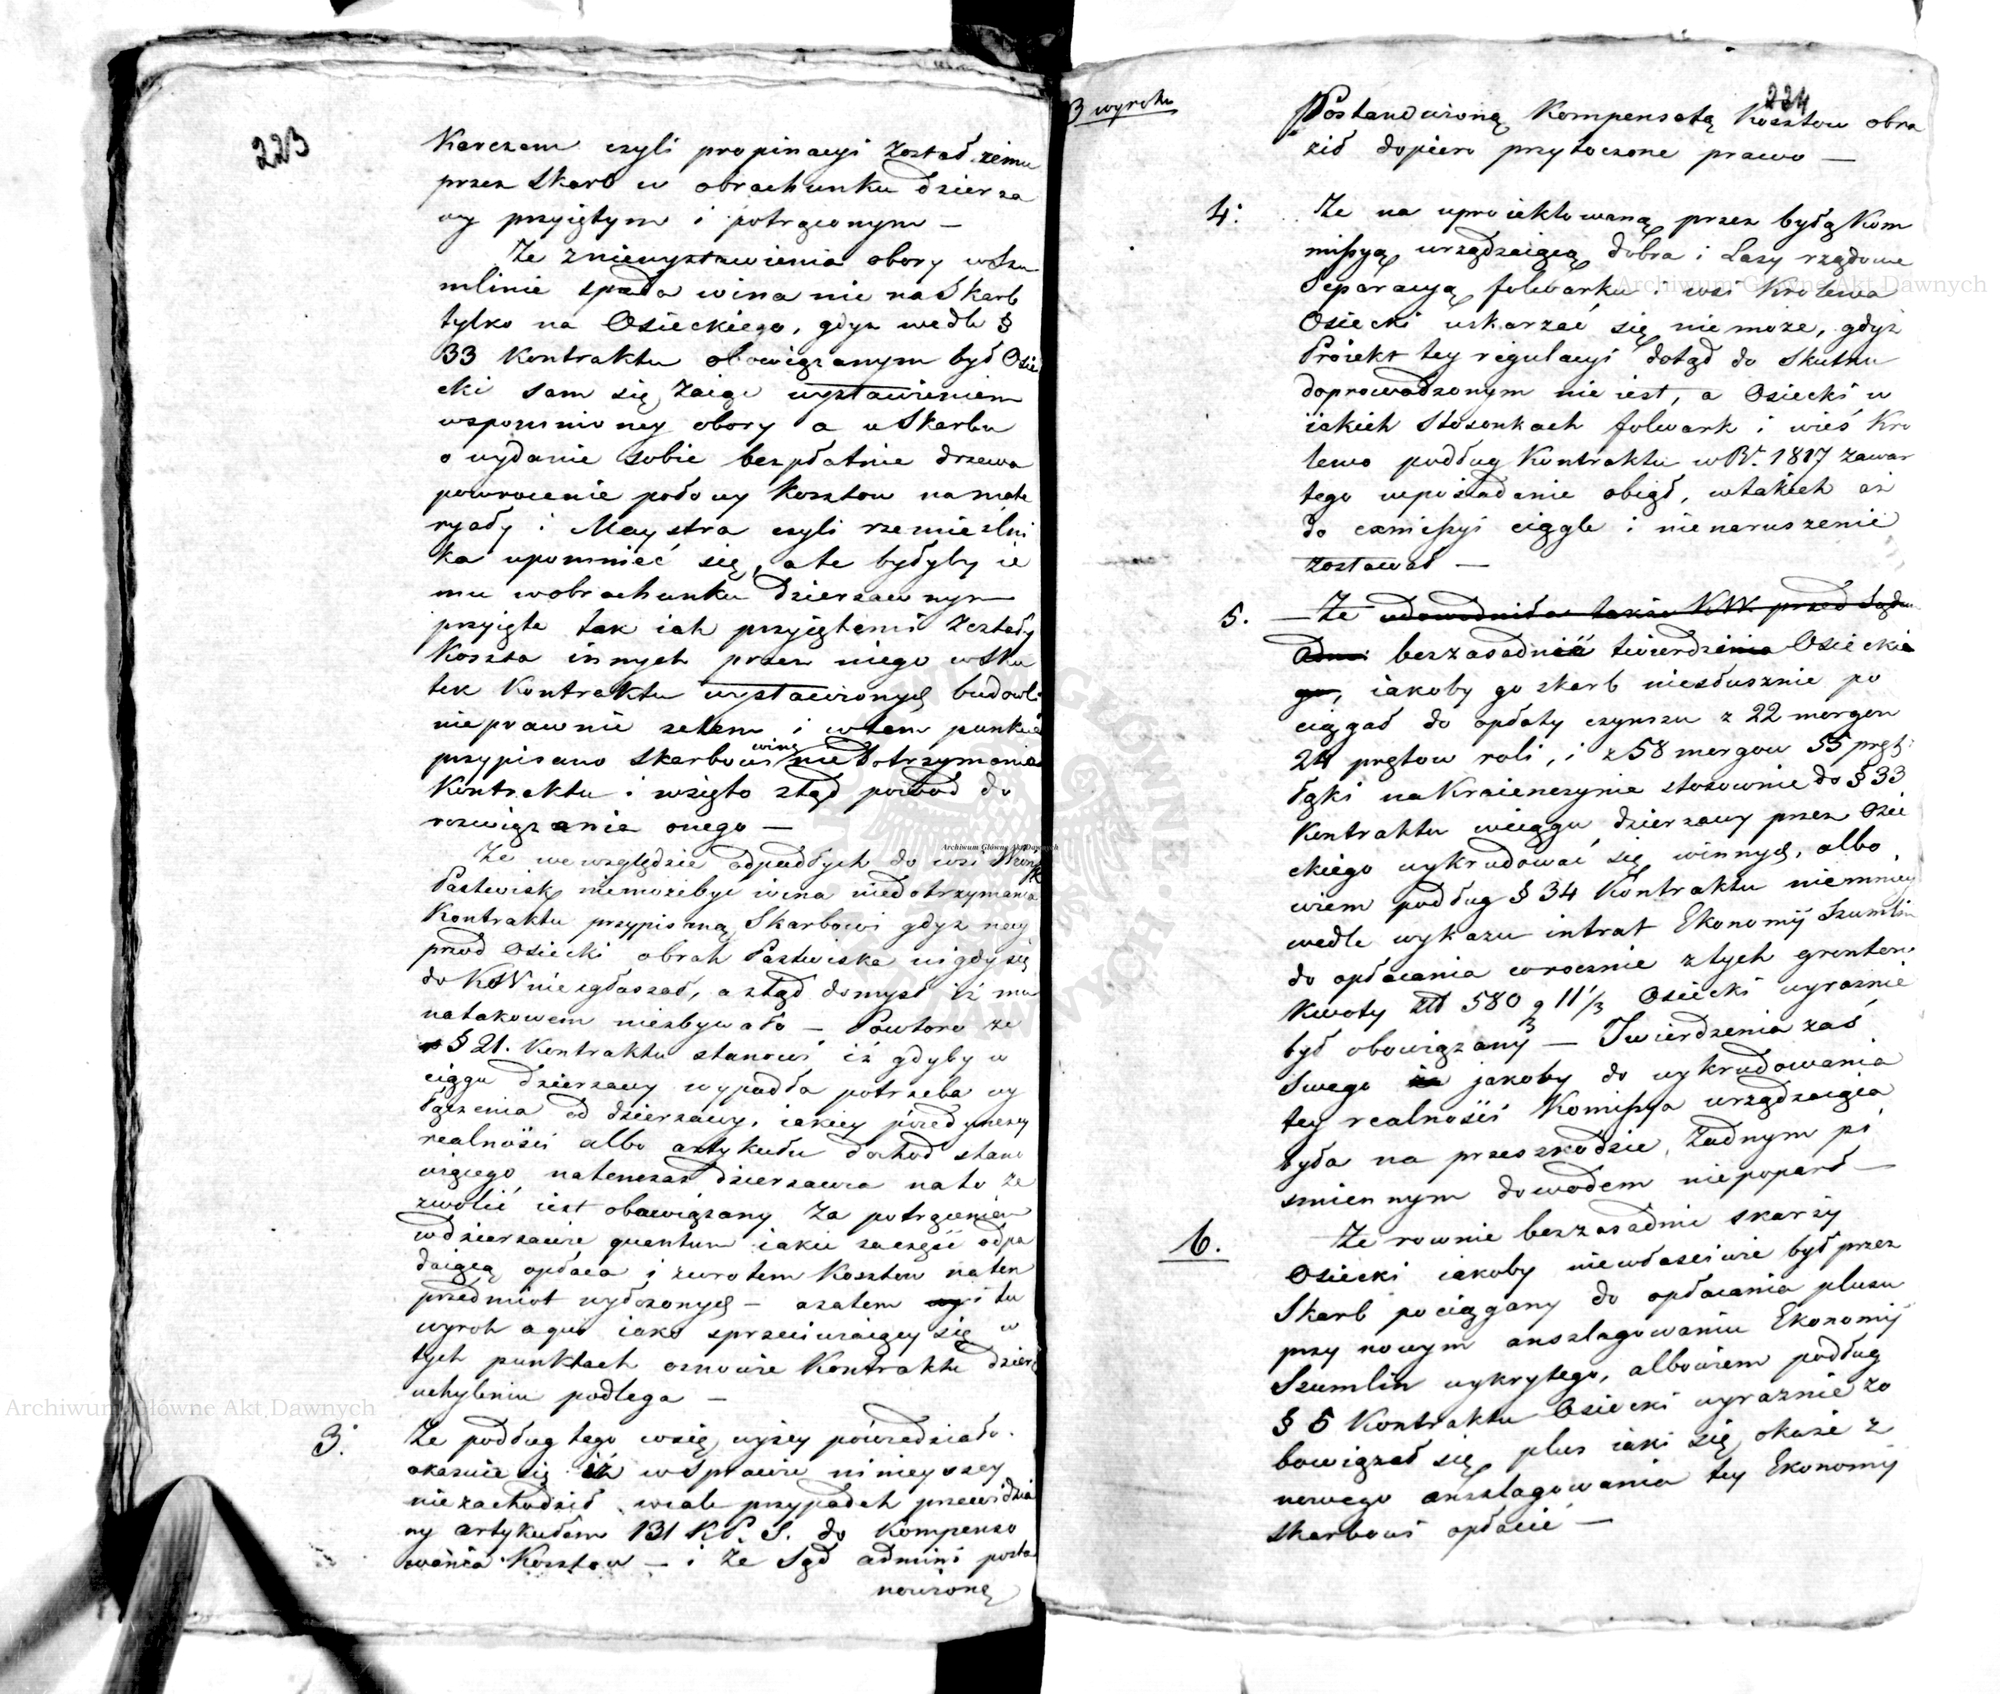 223
Karczem czyli propinacyi został iemu
przez Skarb w obrachunku dzierza
wy przyiętym i potrąconym —
Że z niewystawienia obory w Szu
mlinie spada wina nie na Skarb
tylko na Osieckiego, gdyż wedle §
33 Kontraktu obowiązanym był Osie
cki sam się zaiąć wystawieniem
wspomnioney obory a u Skarbu
o wydanie sobie bezpłatnie drzewa
powrocenie połowy kosztow na mate
ryały i Maystra czyli rzemieślni
ka upomnieć się, a te byłyby ie
mu w obrachunku dzierzawnym
przyięte tak iak przyiętemi zostały
Koszta innych przez niego w sku
tek Kontraktu wystawionych budowli
nieprawnie zatem i w tem punkcie
przypisano Skarbowi winę niedotrzymania
Kontraktu i wzięto ztąd powod do
rozwiązania onego —
Że we względzie odpadłych do wsi
Pastwisk niemoże być wina niedotrzymania
Kontraktu przypisaną Skarbowi gdyż nay
przod Osiecki o brak Pastwiska nigdy się
do KW nie zgłaszał, a ztąd domysł iż mu
na takowem niezbywało — Powtore że
§ 21. Kontraktu stanowi iż gdyby w
ciągu dzierzawy wypadła potrzeba wy
łączenia od dzierzawy, iakiey poiedynczey
realności albo artykułu dochod stano
wiącego, natenczas dzierzawca na to ze
zwolić iest obowiązany za potrąceniem
w dzierzawie quantum iakie za część odpa
daiącą opłaca i zwrotem Kosztow na ten
przedmiot wyłożonych — a zatem i tu
wyrok a quo iako sprzeciwiaiący się w
tych punktach osnowie Kontraktu dzierz
uchyleniu podlega —
3. Że podług tego co się wyżey powiedziało
okazuie się iż w sprawie ninieyszey
nie zachodził wcale przypadek przewidzia
ny artykułem 131 K.P.S. do kompenso
wania Kosztow — i że Sąd admini posta
nowioną
224
3 wyroku
Postanowioną Kompensatą Kosztow obra
ził dopiero przytoczone prawo —
4. Że na uproiektowaną przez byłą Kom
missyą urządzaiącą dobra i Lasy rządowe
Separacyą folwarku i wsi Krolewa
Osiecki uskarzać się nie może, gdyż
Proiekt tey regulacyi dotąd do skutku
doprowadzonym nie iest, a Osiecki w
iakich stosunkach folwark i wieś Kro
lewo podług Kontraktu w R. 1817 zawar
tego w posiadanie obiął, w takich aż
do exmissyi ciągle i nienaruszenie
zostawał —
5. Że udowodniła także KW. przed Sądem
Admi bezzasadnie twierdzenia Osieckie
go, iakoby go skarb niesłusznie po
ciągał do opłaty czynszu z 22 morgow
24 prętow roli, i z 58 morgow 55 pręt:
łąki na Kraienczynie stosownie do § 33
Kontraktu w ciągu dzierzawy przez Osie
ckiego wykrudować się winnych, albo
wiem podług § 34 Kontraktu niemniey
wedle wykazu intrat Ekonomij Szumlin
do opłacania corocznie z tych gruntow
Kwoty Zł 580 g 11 1/3 Osiecki wyraznie
był obowiązany — Twierdzenia zaś
swego jakoby do wykrudowania
tey realności Komissya urządzaiąca
była na przeszkodzie, żadnym pi
smiennym dowodem niepoparł —
6. Że rownie bezzasadnie skarży
Osiecki iakoby niewłaściwie był przez
Skarb pociągany do opłacania plusu
przy nowym anszlagowaniu Ekonomij
Szumlin wykrytego, albowiem podług
§ 5 Kontraktu Osiecki wyraznie zo
bowiązał się plus iaki się okaże z
nowego anszlagowania tey Ekonomij
skarbowi opłacić —
Archiwum Główne Akt Dawnych
Archiwum Główne Akt Dawnych
Archiwum Główne Akt Dawnych